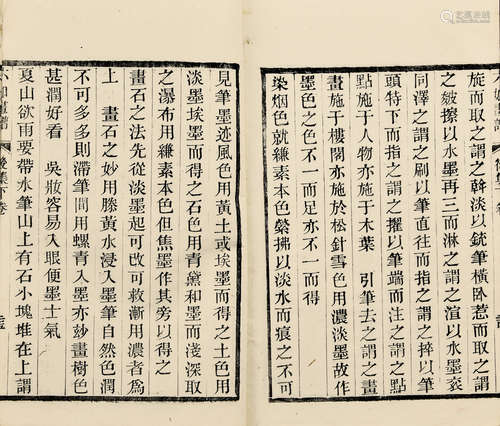 旋而取之謂之斡淡以銳筆橫臥惹而取之謂
之皴擦以水墨再三而淋之謂之渲以水墨衮
同澤之謂之刷以筆直往而指之謂之捽以筆
頭特下而指之謂之擢以筆端而注之謂之點
點施于人物亦施于木葉 引筆去之謂之畫
畫施于樓閣亦施於松針雪色用濃淡墨故作
墨色之色不一而足亦不一而得
染烟色就縑素本色縈拂以淡水而痕之不可
見筆墨迹風色用黃土或埃墨而得之土色用
淡墨埃墨而得之石色用青黛和墨而淺深取
之瀑布用縑素本色但焦墨作其旁以得之
畫石之法先從淡墨起可改可救漸用濃者為
上 畫石之妙用滕黃水浸入墨筆自然色潤
不可多多則滯筆間用螺青入墨亦妙畫樹色
甚潤好看 吳妝容易入眼使墨士氣
夏山欲雨要帶水筆山上有石小塊堆在上謂
後集下卷